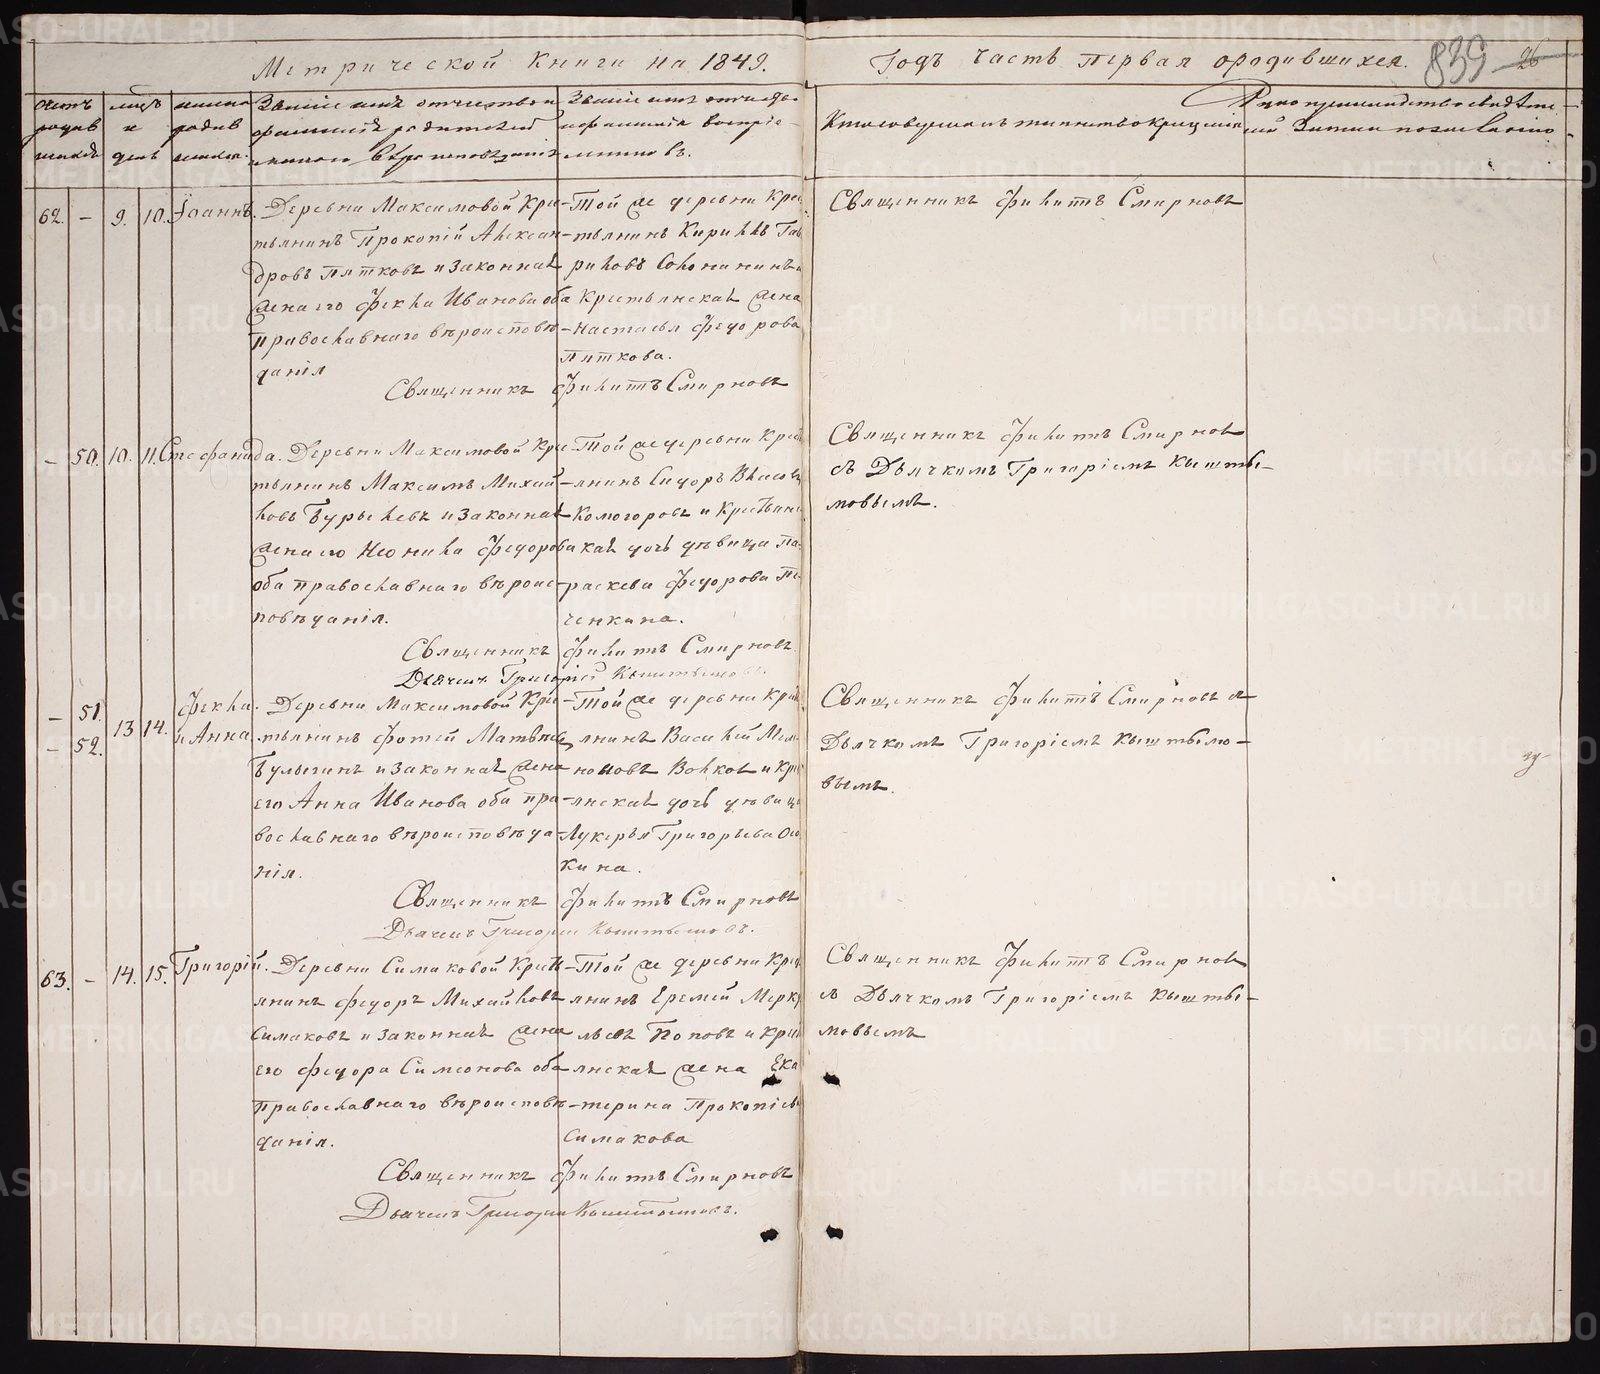 Метрической Книги на 1849.
Годъ Часть первая ородившихся.
839 26
Счетъ родив шихся
мѣсъ и день
имена родив шихся.
Званіе имя отчество и фамилія родителей и какого вѣроисповѣданія
Званіе имя отчество и фамилія воспріе- мниковъ.
Кто совершалъ таинство крещенія
Рукоприкладство свидѣте- лей записи по желанію.
62. – 9. 10. Іоаннъ. Деревни Максимовой Кре-
стьянинъ Прокопій Алексан-
дровъ Пятковъ и законная
жена его Фекла Иванова оба
православнаго вѣроисповѣ-
данія
Той же деревни Крес
тьянинъ Кириллъ Гав
риловъ Солонининъ и
Крестьянская жена
Настасья Федорова
Пяткова.
Священникъ Филиппъ Смирновъ
Священникъ Филиппъ Смирновъ
– 50. 10. 11. Стефанида. Деревни Максимовой Кре
стьянинъ Максимъ Михай
ловъ Бурылевъ и законная
жена его Неонила Федорова
оба православнаго вѣроис-
повѣданія.
Той же деревни Крест
янинъ Сидоръ Власовъ
Комогоровъ и Крестьянс
кая дочь дѣвица Па-
раскева Федорова Пе
ченкина.
Священникъ Филиппъ Смирновъ
Дьячекъ Григорій Кыштымовъ.
Священникъ Филиппъ Смирновъ
съ Дьячкомъ Григоріемъ Кышты-
мовымъ.
– 51. – 52. 13 14. Фекла. и Анна
Деревни Максимовой Кре
стьянинъ Фотей Матвѣевъ
Булыгинъ и законная жена
его Анна Иванова оба пра
вославнаго вѣроисповѣда-
нія.
Той же деревни крест
янинъ Василей
Волковъ и Крес
янская дочь дѣвица
Лукерья Григорьева
кина.
Священникъ Филиппъ Смирновъ
Дьячекъ Григорій Кыштымовъ.
Священникъ Филиппъ Смирновъ съ
Дьячкомъ Григоріемъ Кыштымо-
вымъ.
63. – 14. 15. Григорій. Деревни Симаковой Крест
янинъ Федоръ Михайловъ
Симаковъ и законная жена
его Федора Симеонова оба
православнаго вѣроисповѣ-
данія.
Той же деревни Крест
янинъ Еремей Мерку
льевъ Поповъ и Крест
янская жена Ека
терина Прокопіева
Симакова
Священникъ Филиппъ Смирновъ
Дьячекъ Григорій Кыштымовъ.
Священникъ Филиппъ Смирновъ
съ Дьячкомъ Григоріемъ Кышты-
мовымъ
METRIKI.GASO-URAL.RU